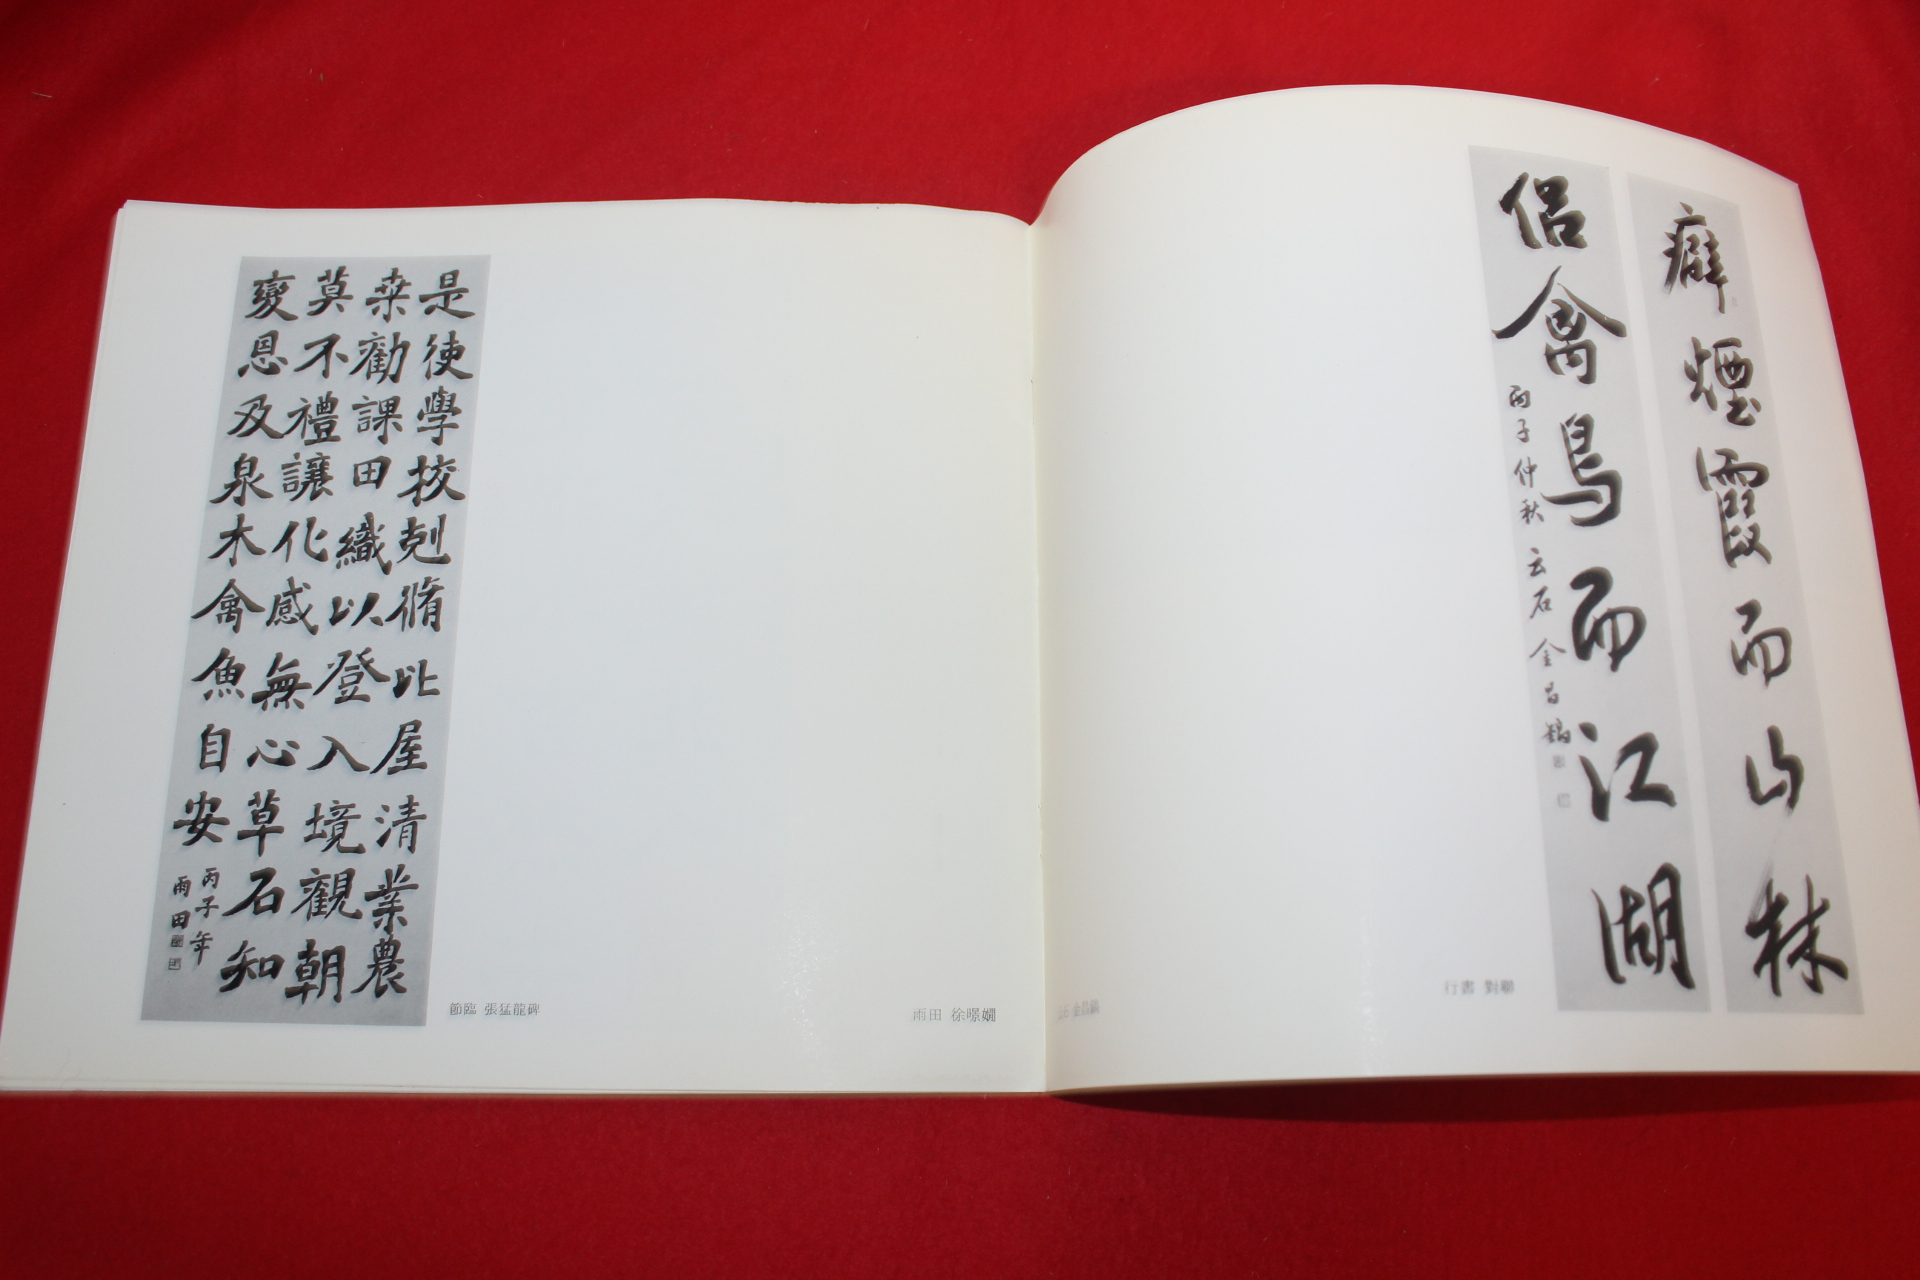 是使學挍剋脩比屋清業農
桒勸課田織以登入境觀朝
莫不禮讓化感無心草石知
變恩及泉木禽魚自安
丙子年
雨田
節臨 張猛龍碑
雨田 徐暻嫺
癖煙霞而山林
侶禽鳥而江湖
丙子仲秋 云石 金昌鎬
行書 對聯
云石 金昌鎬